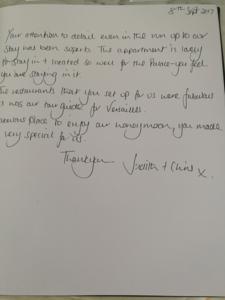 8th Sept 2017
Your attention to detail even in the run up to our
stay has been superb. This appartment is
to stay in + located so well for the Palace - you feel
you are staying in it.
The restaurants that you set up for us were fabulous
as was our tour guide for Versailles.
place to enjoy our honeymoon, you made
very special for us.
Thankyou
Judith + Chris x